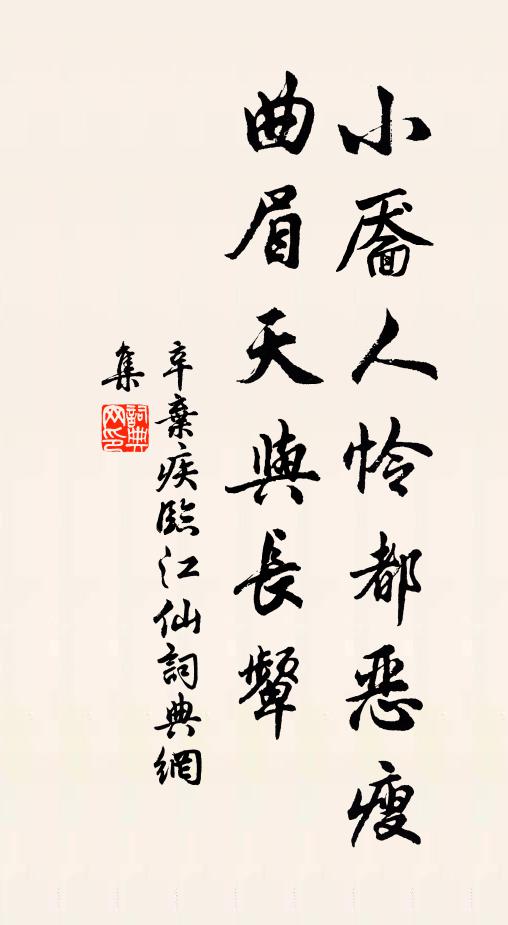 小靨人怜都恶瘦
曲眉天與長顰
辛棄疾臨江仙詞典網
集
詞典网印